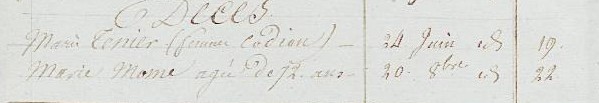 Décès.
Marie Tenier (femme Codion) — 24 Juin id 19.
Marie Mome agée de 72. ans 20. 8bre id 22